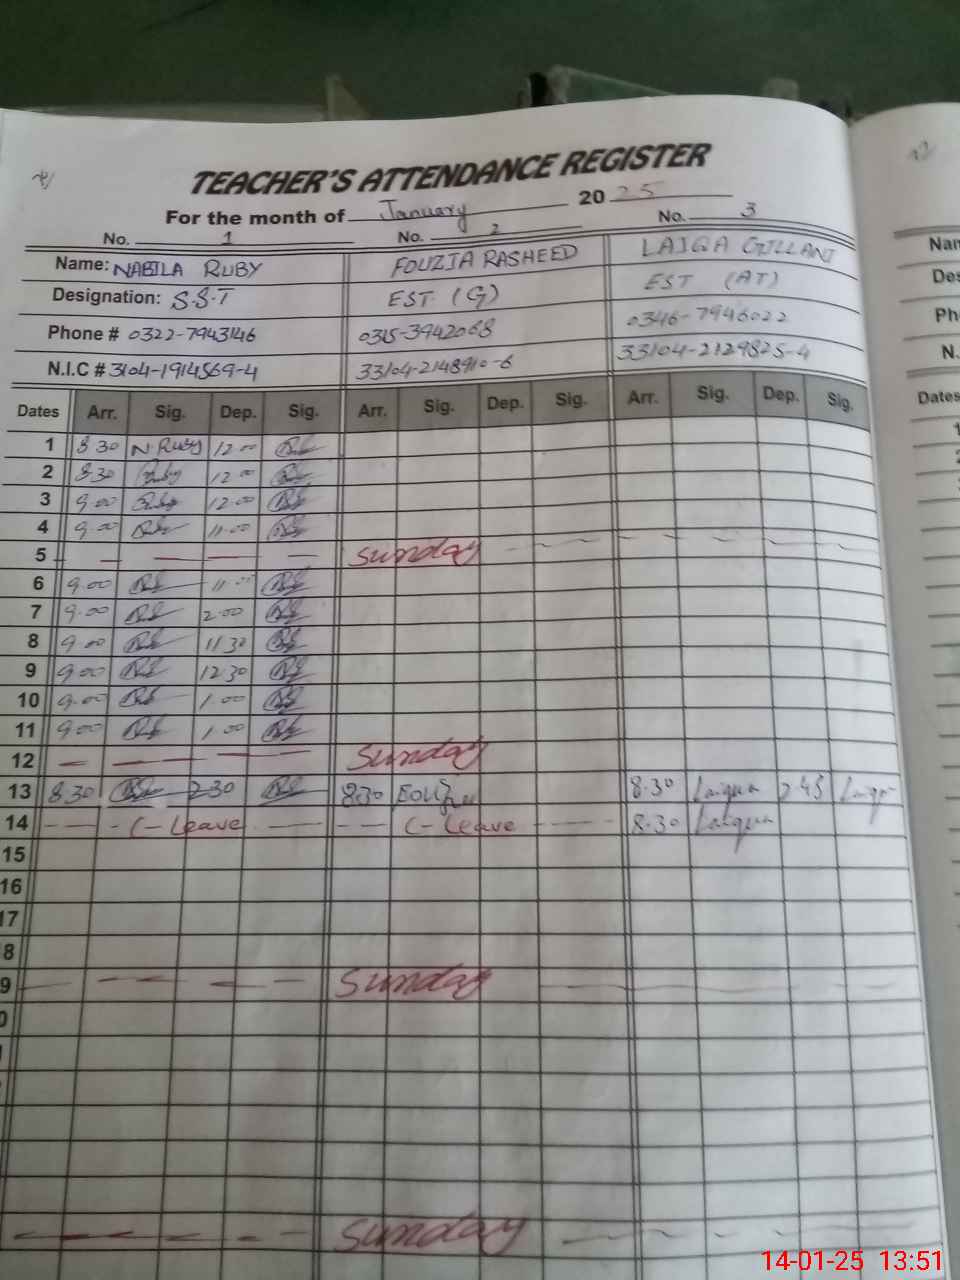 TEACHER'S ATTENDANCE REGISTER
For the month of January 2025
No. 1 No. 2 No. 3
Name: NABILA RUBY FOUZIA RASHEED LAIQA GILLANI
Designation: S.S.T EST (G) EST (AT)
Phone # 0322-7943146 0315-3942068 0346-7946022
N.I.C # 3104-1914569-4 33104-2148910-6 33104-2129825-4
Dates Arr. Sig. Dep. Sig. Arr. Sig. Dep. Sig. Arr. Sig. Dep. Sig.
1 8 30 N Ruby 12 00
2 8 30 Ruby 12 00
3 9.00 Ruby 12.00
4 9.00 11.00
5 Sunday
6 9.00 11.00
7 9.00 2.00
8 9.00 11 30
9 9.00 12 30
10 9.00 1.00
11 9.00 1.00
12 Sunday
13 8.30 2.30 8.30 8.30 Laiqua 2.45 Laiqa
14 C-Leave C-Leave 8.30 Laiqua
15
16
17
8
9 Sunday
0
Sunday
Nam
Des
Ph
N.
Dates
14-01-25 13:51